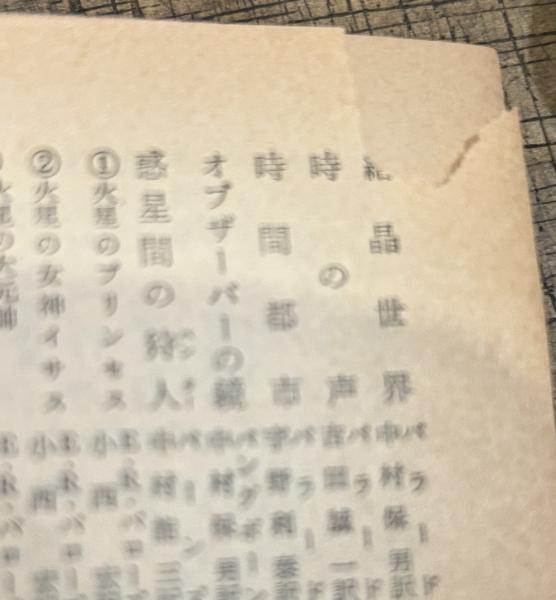 結晶世界 バラード 中村保男訳
時の声 バラード 吉田誠一訳
時間都市 バラード 宇野利泰訳
オブザーバーの鏡 パングボーン 中村保男訳
惑星間の狩人 バーンズ 中村能三訳
①火星のプリンセス E・R・バロー 小西宏
②火星の女神イサス E・R・バロー 小西宏
火星の大元帥 E・R・バロー